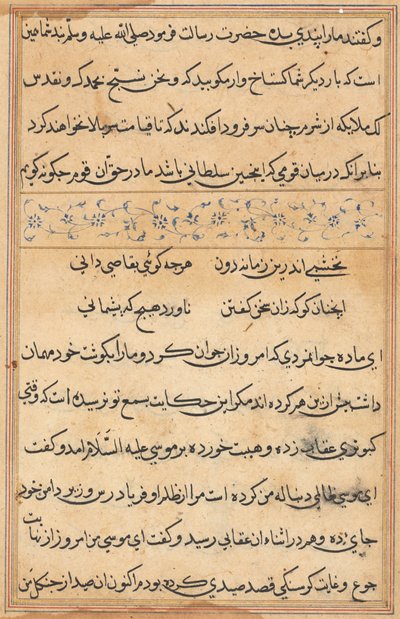 و گفتند ما را پندی بده حضرت رسالت فرمود صلی الله علیه و سلم پند شما همین
است که بار دیگر شما گستاخ وار مگویید که و نحن نسبح بحمدک و نقدس
لک ملایکه از شرم چنان سر فرود افکندند که تا قیامت سر بالا نخواهند کرد
بنابرآنکه در میان قومی که اینچنین سلطانی باشد ما در حق آن قوم چگونه گوییم
نخشبی اندرین زمانه دون هرچه گوئی بقاصی دانی
آنچنان گو که زان سخن گفتن ناورد هیچ گه پشیمانی
ای ماده جوانمردی که امروز آن جوان کرد و ما را بگوشت خود مهمان
داشت پیش ازین هم کرده اند مگر این حکایت بسمع تو نرسیده است که وقتی
کبوتری عقاب زده و هیبت خورده بر موسی علیه السلام آمد و گفت
ای موسی ظالمی دنباله من کرده است مرا از ظلم او فریاد رس و زیر دامن خود
جای ده و هم در اثناء آن عقابی رسید و گفت ای موسی من امروز از نهایت
جوع و غایت گرسنگی قصد صیدی کرده بودم اکنون آن صید از چنگل من